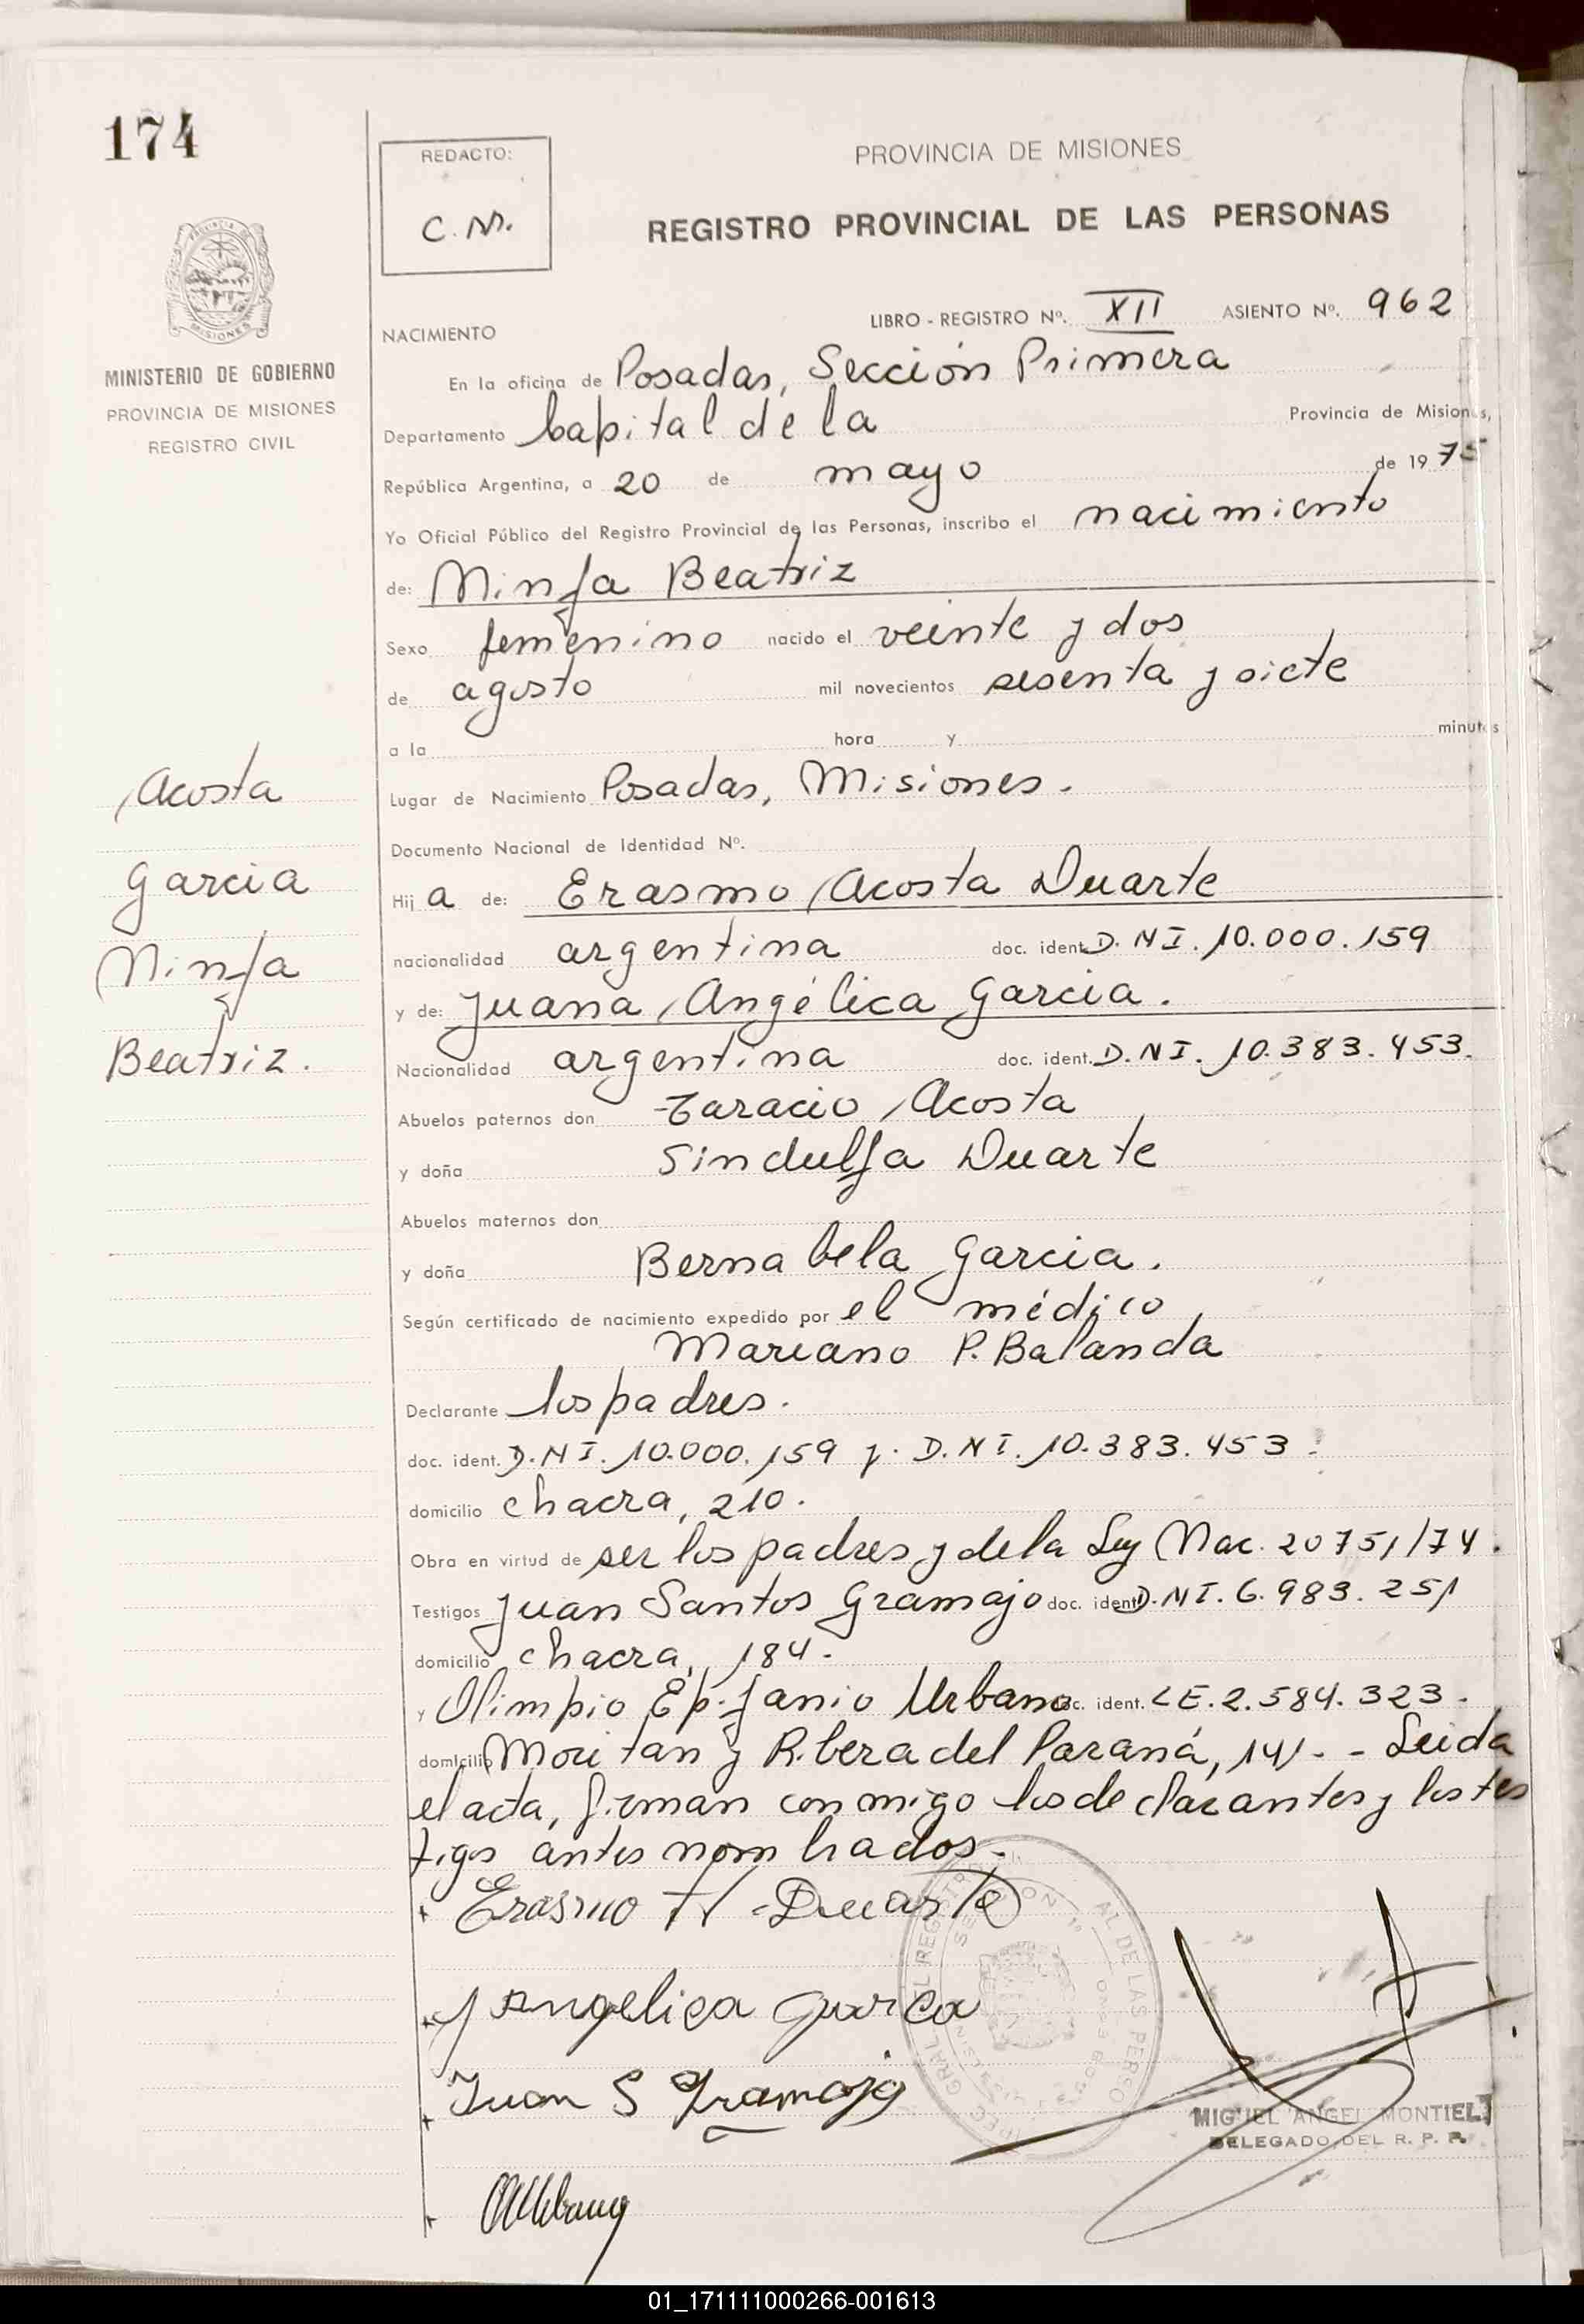 174
REDACTO:
C. M.
PROVINCIA DE MISIONES
REGISTRO PROVINCIAL DE LAS PERSONAS
MISIONES
MINISTERIO DE GOBIERNO
PROVINCIA DE MISIONES
REGISTRO CIVIL
LIBRO - REGISTRO Nº. XII ASIENTO Nº. 962
NACIMIENTO
En la oficina de Posadas, Sección Primera
Departamento Capital de la Provincia de Misiones,
República Argentina, a 20 de mayo de 1975
Yo Oficial Público del Registro Provincial de las Personas, inscribo el nacimiento
de: Ninfa Beatriz
Sexo femenino nacido el veinte y dos
de agosto mil novecientos sesenta y siete
a la hora y minutos
Lugar de Nacimiento Posadas, Misiones.
Documento Nacional de Identidad Nº.
Acosta
Garcia
Ninfa
Beatriz.
Hij a de: Erasmo Acosta Duarte
nacionalidad argentina doc. ident. D.N.I. 10.000.159
y de: Juana Angélica Garcia.
Nacionalidad argentina doc. ident. D.N.I. 10.383.453.
Abuelos paternos don Taracio Acosta
y doña Sindulfa Duarte
Abuelos maternos don
y doña Bernabela Garcia.
Según certificado de nacimiento expedido por el médico
Mariano P. Balanda
Declarante los padres.
doc. ident. D.N.I. 10.000.159 y. D.N.I. 10.383.453.
domicilio chacra, 210.
Obra en virtud de ser los padres y de la Ley Nac. 20751/74.
Testigos Juan Santos Gramajo doc. ident. D.N.I. 6.983.251
domicilio chacra, 184.
y Olimpio Epifanio Urbano doc. ident. L.E. 2.584.323.
domicilio Moritan y Ribera del Paraná, 141. - Leida
el acta, firman conmigo los declarantes y los tes
tigos antes nombrados.
Erasmo A Duarte
J Angelica Garca
Juan S Gramajo
OEUrbano
SECCION 1º
MIGUEL ANGEL MONTIEL
DELEGADO DEL R. P. P.
01_171111000266-001613